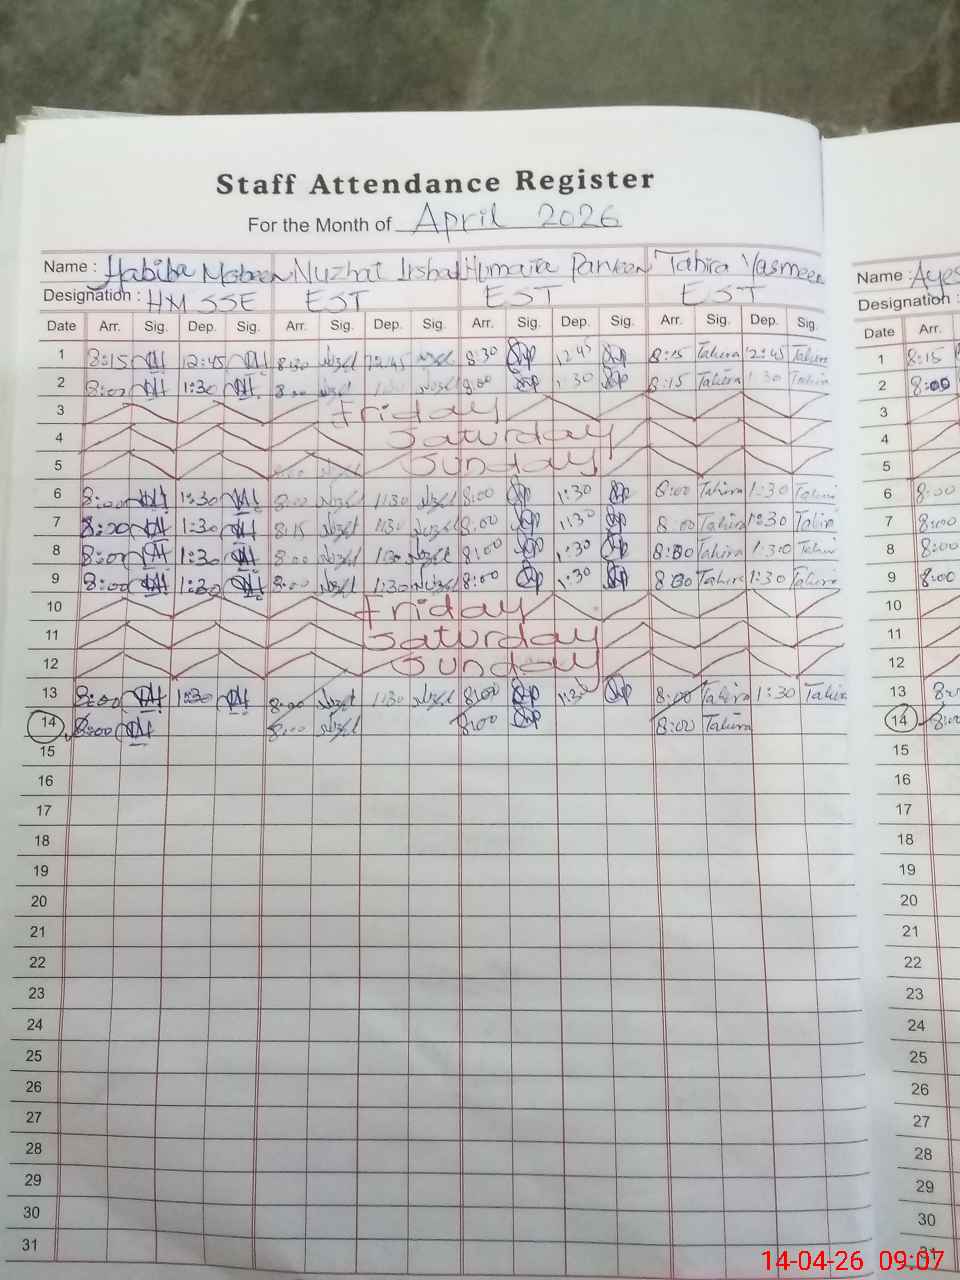 Staff Attendance Register
For the Month of April 2026
Name : Habiba Mobeen Nuzhat Irshad Humaira Parveen Tahira Yasmeen
Designation : HM SSE EST EST EST
Date Arr. Sig. Dep. Sig. Arr. Sig. Dep. Sig. Arr. Sig. Dep. Sig. Arr. Sig. Dep. Sig.
1 8:15 12:45 8:30 12:45 8:30 12:45 8:15 Tahira 12:45 Tahira
2 8:00 1:30 8:00 1:30 8:00 1:30 8:15 Tahira 1:30 Tahira
3 Friday
4 Saturday
5 Sunday
6 8:00 1:30 8:00 1:30 8:00 1:30 8:00 Tahira 1:30 Tahira
7 8:00 1:30 8:15 1:30 8:00 1:30 8:00 Tahira 1:30 Tahira
8 8:00 1:30 8:00 1:30 8:00 1:30 8:00 Tahira 1:30 Tahira
9 8:00 1:30 8:00 1:30 8:00 1:30 8:00 Tahira 1:30 Tahira
10 Friday
11 Saturday
12 Sunday
13 8:00 1:30 8:00 1:30 8:00 1:30 8:00 Tahira 1:30 Tahira
14 8:00 8:00 8:00 8:00 Tahira
15
16
17
18
19
20
21
22
23
24
25
26
27
28
29
30
31
Name :
Designation :
Date Arr.
1 8:15
2 8:00
3
4
5
6 8:00
7 8:00
8 8:00
9 8:00
10
11
12
13
14
15
16
17
18
19
20
21
22
23
24
25
26
27
28
29
30
31
14-04-26 09:07